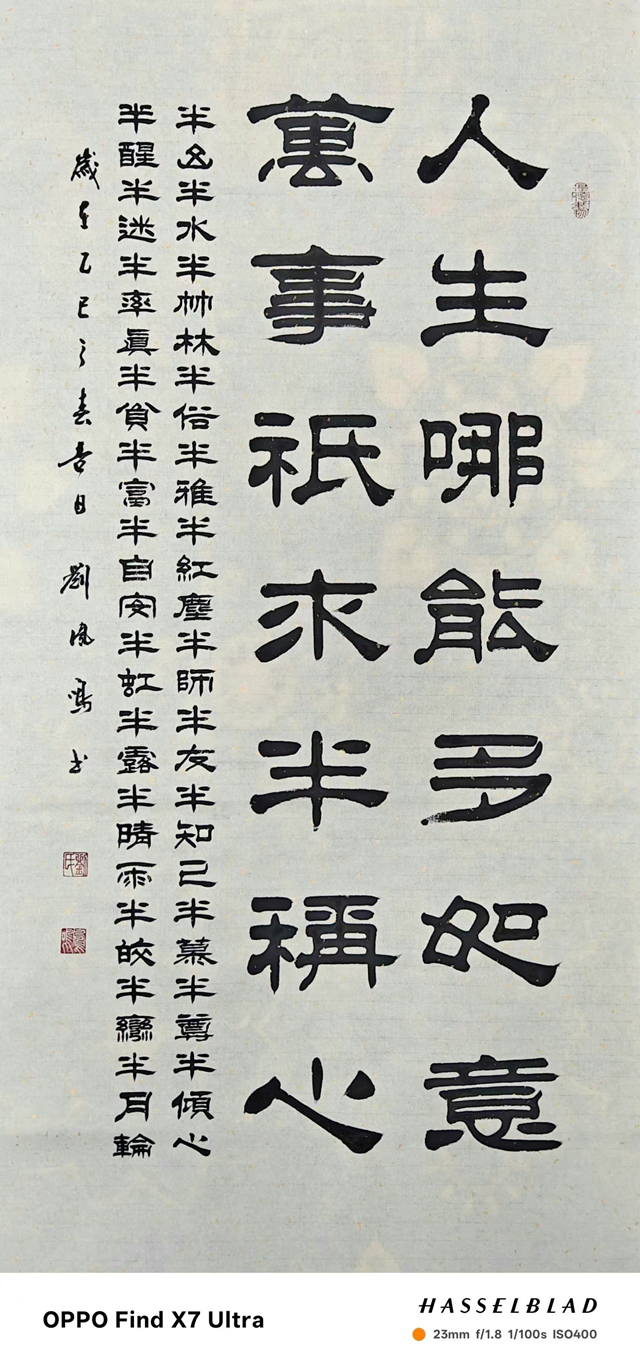 人生哪能多如意
萬事祇求半稱心
半山半水半竹林半俗半雅半紅塵半師半友半知己半慕半尊半傾心
半醒半迷半率真半貧半富半自安半虹半露半晴雨半皎半彎半月輪
歲在乙巳之春吉日 劉鳳鳴书
OPPO Find X7 Ultra
HASSELBLAD
23mm f/1.8 1/100s ISO400